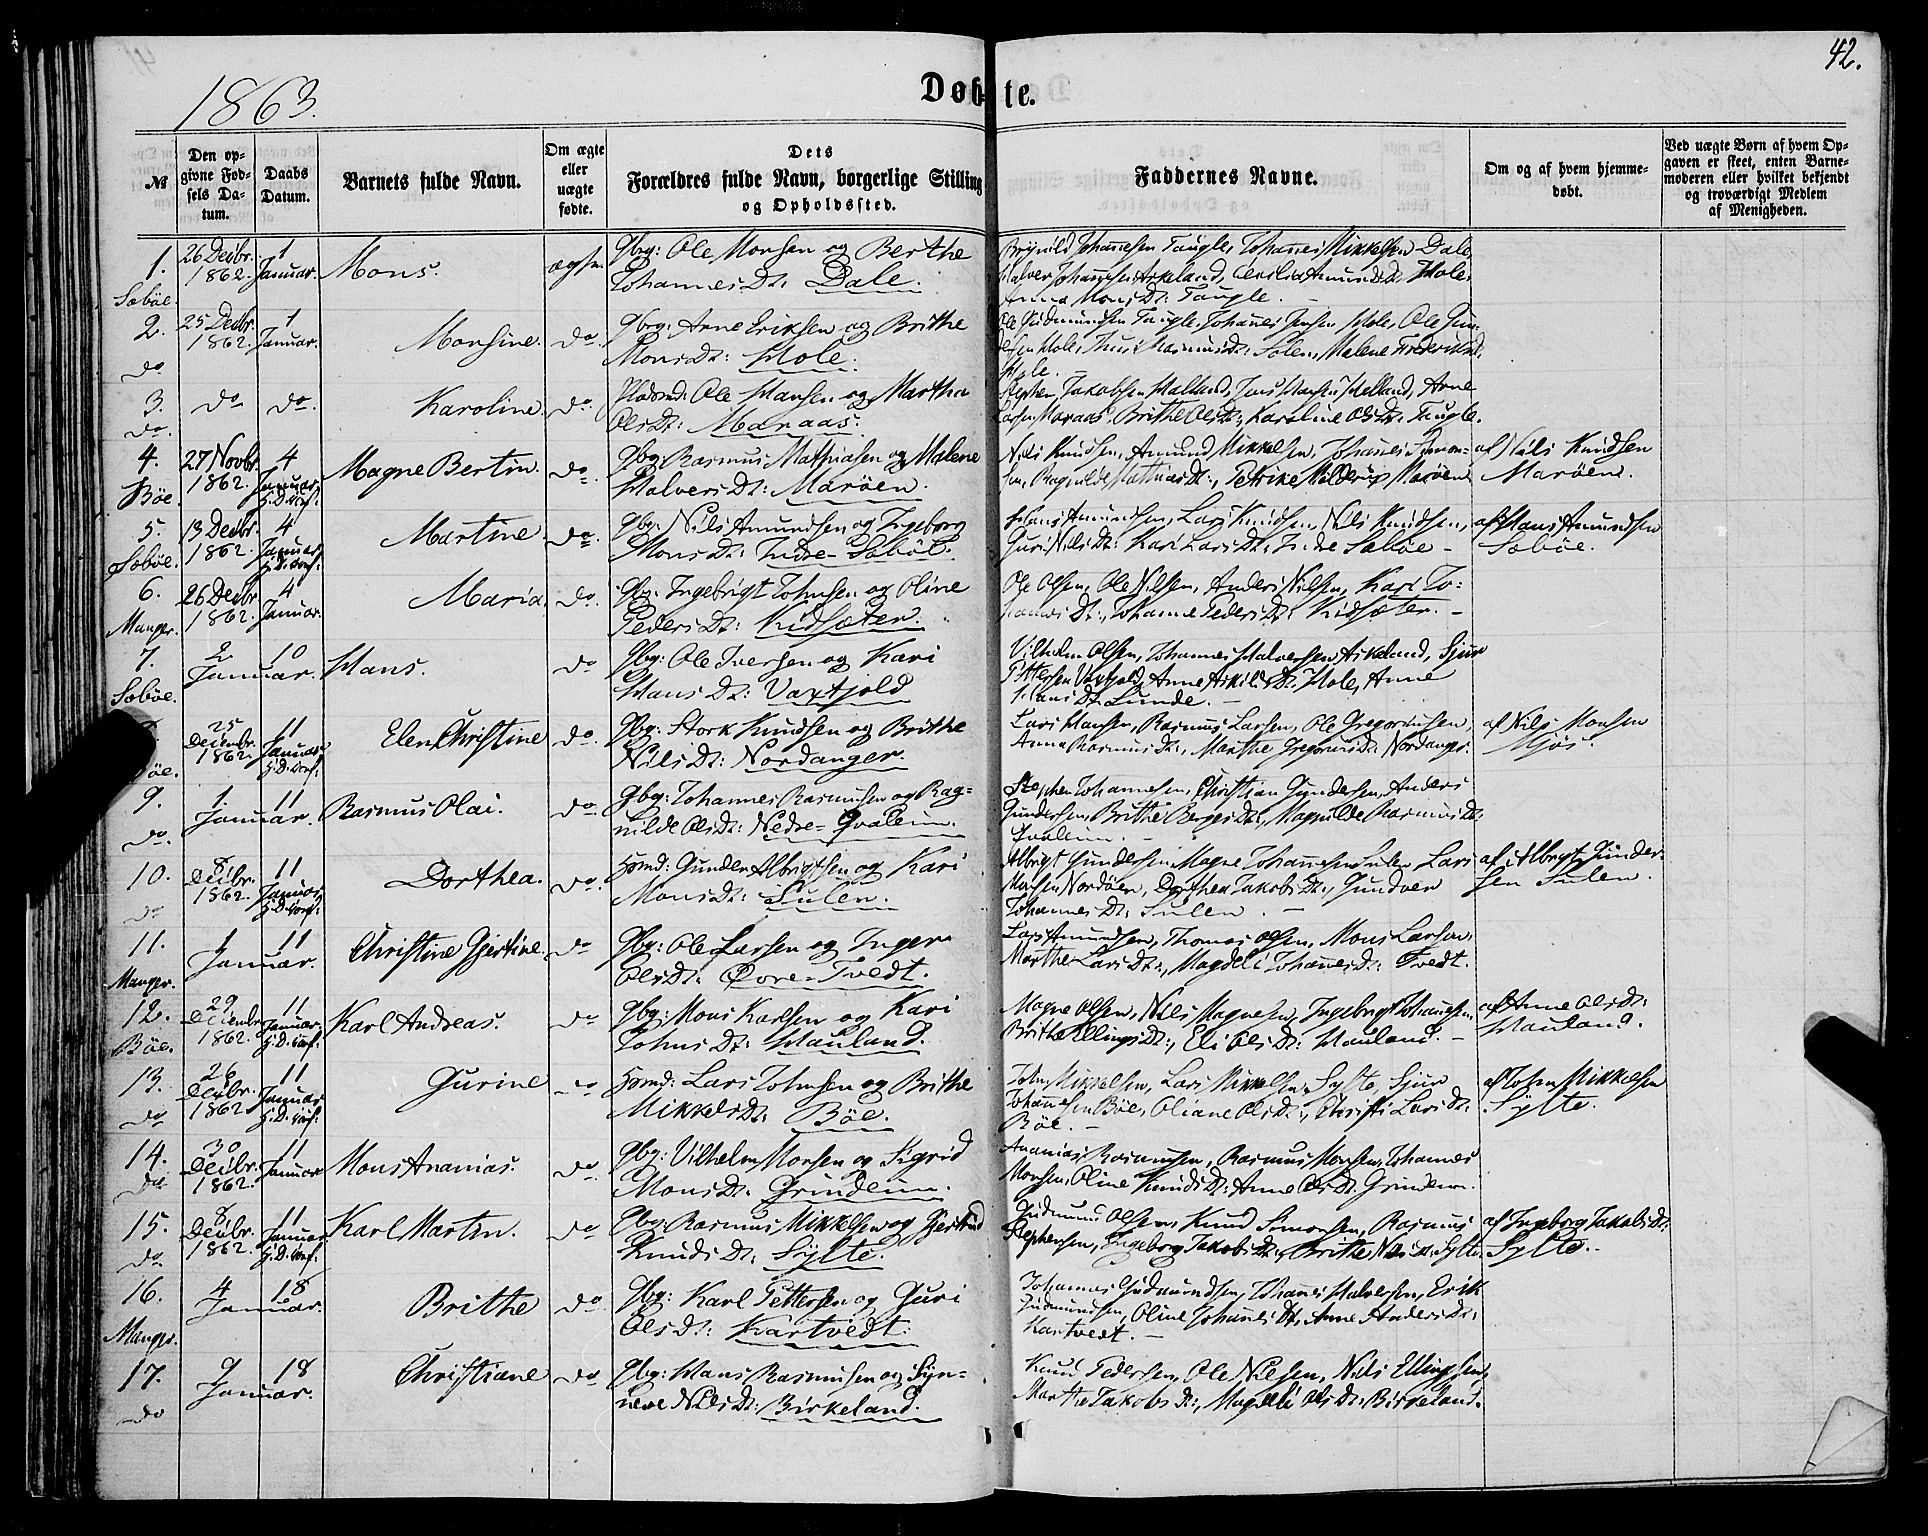 42.
1863.
Døbte.
№
Den opgivne Fødsels Datum.
Daabs Datum.
Barnets fulde Navn.
Om ægte eller uægte fødte.
Dets Forældres fulde Navn, borgerlige Stilling og Opholdssted.
Faddernes Navne.
Om og af hvem hjemmedøbt.
Ved uægte Børn af hvem Opgaven er skeet, enten Barnemoderen eller hvilket bekjendt og troværdigt Medlem af Menigheden.
1. Sæbøe. 26 Decbr. 1862. 1 Januar. Mons. ægte.
Gbg: Ole Monsen og Berthe
Johannes Dt: Dale.
Johannesen Taugle, Johannes Mikkelsen Dale,
Halver Johannesen Askeland, Cecilia Amunds Dt: Hole,
Anna Mons Dt: Taugle.
2. do 25 Decbr. 1862. 1 Januar. Monsine. do.
Gbg: Arne Eriksen og Brithe
Mons Dt: Hole.
Ole Gudmundsen Taugle, Johannes Jensen Hole, Ole
Hole, Rasmus Dt: Solen, Malene
Hole.
3. do. do do. Karoline. do.
Ole Hansen og Martha
Ols Dt: Maraas.
Stephen Jakobsen Halland, Jens Hansen Halland, Arne
Larsen Maraas, Brithe Ols Dt:, Karoline Ols Dt: Taugle.
4. Bøe. 27 Novbr. 1862. 4 Januar. Magne Bertin. do.
Gbg: Rasmus Mathiasen og Malene
Halvers Dt: Marøen.
Nils Knudsen, Amund Mikkelsen, Johannes Simonsen,
Ragnilde Mathias Dt:, Petrike Marøen
af Nils Knudsen
Marøen.
5. Sæbøe. 13 Decbr. 1862. 4 Januar. Martine. do.
Gbg: Nils Amundsen og Ingeborg
Mons Dt: Indre-Sæbøe.
Hans Amundsen, Lars Knudsen, Nils Knudsen,
Guri Nils Dt: Kari Lars Dt: Indre Sæbøe -
af Hans Amundsen
Sæbøe.
6. Manger. 26 Decbr 1862. 4 Januar. Maria. do.
Gbg: Ingebrigt Johnsen og Oline
Peders Dt: Kidsæter.
Ole Olsen, Ole Nilsen, Anders Nilsen, Kari Johannes
Dt:, Johanne Peders Dt: Kidsæter. -
7. Sæbøe. 2 Januar. 10 Hans. do
Gbg: Ole Iversen og Kari
Hans Dt: Vaxtjold
Vilhelm Olsen, Johannes Halversen Askeland, Sjur
Pettersen Vaxtjold, Anne Dt: Hole, Anne
Hans Dt: Lunde. -
25 Decenbr. 1862. 11 Januar. Elen Christine do
Gbg: Stork Knudsen og Brithe
Nils Dt: Nordanger.
Lars Hansen, Rasmus Larsen, Ole Gregoriusen,
Anna Rasmus Dt:, Marthe Gregorius Dt: Nordanger.
af Nils Monsen
Mjøs.
9. do. 1. Januar. 11 Rasmus Olai. do
Gbg: Johannes Rasmusen og Ragnilde
Ols Dt: Nedre-Qvalem.
Stephen Johannesen, Christian Gundersen, Anders
Gundersen, Brithe Berges Dt:, Magnilde Rasmus Dt:
Qvalem.
10. do 8 Decbr. 1862. 11 Januar. Dorthea. do.
Hsmd: Gunder Albrigtsen og Kari
Mons Dt: Sulen.
Albrigt Gundersen Magne Johannesen Sulen Lars
Monsen Nordøen, Dorthea Jakobs Dt:, Gundver
Johannes Dt: Sulen. -
af Albrigt Gundersen
Sulen.
11. Manger. 1 Januar. 11 Christine Gjertine. do
Gbg: Ole Larsen og Inger
Ols Dt: Øvre-Tvedt.
Lars Amundsen, Thomas Olsen, Mons Larsen,
Marthe Lars Dt:, Magdeli Johannes Dt: Tvedt.
12. Bøe. 29 Decenbr. 1862. 11 Januar. Karl Andreas. do
Gbg: Mons Karlsen og Kari
Johns Dt: Hauland.
Magne Olsen, Nils Magnesen, Ingebrigt Johannesen,
Brithe Ellings Dt:, Eli Ols Dt: Hauland. -
af Anne Ols Dt:
Hauland.
13. do 26 Decbr. 1862. 11 Januar. Gurine do
Hsmd: Lars Johnsen og Brithe
Mikkels Dt: Bøe.
John Mikkelsen, Lars Mikkelsen Sylte, Sjur
Johannesen Bøe, Oliane Ols Dt:, Christi Lars Dt:
Bøe. -
af John Mikkelsen
Sylte.
14. do. 30 Decbr. 1862. 11 Januar Mons Ananias. do.
Gbg: Vilhelm Monsen og Sigrid
Mons Dt: Grindeim.
Ananias Rasmusen, Rasmus Monsen, Johannes
Monsen, Oline Knuds Dt: Anne Ols Dt: Grindem.
15. do 8 Decbr. 1862. 11 Januar Karl Martin. do
Gbg: Rasmus Mikkelsen og Gjertrud
Knuds Dt: Sylte.
Gudmund Olsen, Knud Simonsen, Rasmus
Stephensen, Ingeborg Jakobs Dt:, Brithe Nils Dt: Sylte.
af Ingeborg Jakobs Dt:
Sylte.
16. Manger. 4 Januar. 18 Brithe do
Gbg: Karl Pettersen og Guri
Ols Dt: Kartvedt.
Johannes Gudmundsen, Johannes Halversen, Erik
Gudmundsen, Oline Johannes Dt, Anne Anders Dt:
Kartvedt. -
17. do 9 Januar. 18 Christiane do
Gbg: Hans Rasmusen og Synneve
Nils Dt: Birkeland.
Knud Pedersen, Ole Nilsen, Nils Ellingsen,
Marthe Jakobs Dt:, Magdeli Ols Dt: Birkeland.